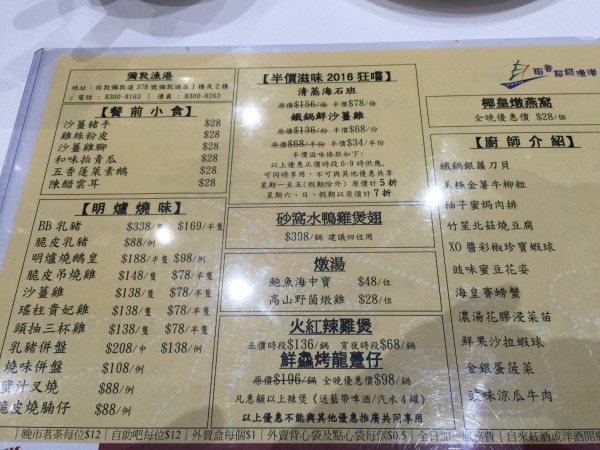 彌敦漁港
地址：佐敦彌敦道378號彌敦酒店1樓及2樓
電話：8300-8163 | 傳真：8300-8263
【餐前小食】
沙薑豬手 $28
雞絲粉皮 $28
沙薑雞腳 $28
和味拍青瓜 $28
五香蓬萊素鵝 $28
陳醋雲耳 $28
【明爐燒味】
BB乳豬 $338/隻 $169/半隻
脆皮乳豬 $88/例
明爐燒鵝皇 $188/半隻 $98/例
脆皮吊燒雞 $148/隻 $78/半隻
沙薑雞 $138/隻 $78/半隻
瑤柱貴妃雞 $138/隻 $78/半隻
頭抽三杯雞 $138/隻 $78/半隻
乳豬併盤 $208/中 $138/例
燒味併盤 $108/例
蜜汁叉燒 $88/例
脆皮燒腩仔 $88/例
【半價滋味2016狂嚐】
清蒸海石班
原價$156/條 半價$78/條
鐵鍋鮮沙薑雞
原價$136/份 半價$68/份
原價$68/半份 半價$34/半份
半價滋味條款如下：
以上優惠正價時段6-9時供應,
可同時享用，不可與其他優惠共享
星期一至五(假期除外)原價計5折
星期六、日、假期以原價計7折
砂窩水鴨雞煲翅
$398/鍋 建議四位用
燉湯
鮑魚海中寶 $48/位
高山野菌燉雞 $28/位
火紅辣雞煲
正價時段$136/鍋 宵夜時段$68/鍋
鮮鱻烤龍躉仔
原價$196/鍋 全晚優惠價$98/鍋
凡惠顧以上辣煲《送藍帶啤酒/汽水4罐》
以上優惠不能與其他優惠推廣共同享用
稻香超級漁港
椰皇燉燕窩
全晚優惠價 $28/個
【廚師介紹】
鐵鍋銀蘿刀貝
美極金薯牛柳粒
柚子蜜焗肉排
竹笙北菇燒豆腐
XO醬彩椒珍寶蝦球
豉味蜜豆花姿
海皇賽螃蟹
濃湯花膠浸菜苗
鮮果沙拉蝦球
金銀蛋菠菜
豉味涼瓜牛肉
|晚市茗茶每位$12 |自助吧每位$12 |外賣盒每個$1 |外賣背心袋及點心袋每個$0.5 |全日加一服務費 |自來紅酒或洋酒開